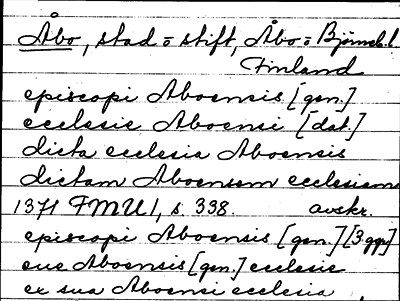 Åbo, stad = stift, Åbo = Björneb. l.
Finland
episcopi Aboensis [gen.]
ecclesie Aboensi [dat.]
dicta ecclesia Aboensis
dictam Aboensem ecclesiam
1371 FMU 1, s. 338. avskr.
episcopi Aboensis [gen.] [3 ggr]
sue Aboensis [gen.] ecclesie
ex sua Aboensi ecclesia